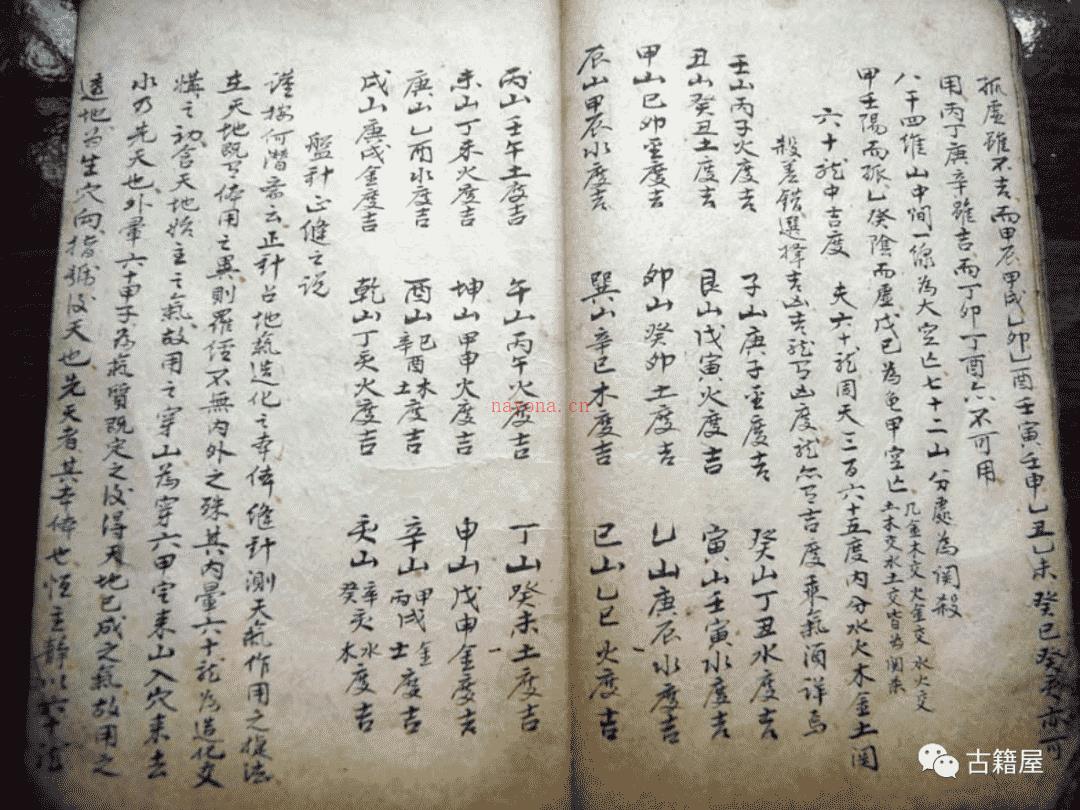 孤虛雖不吉而甲辰甲戌乙卯乙酉壬寅壬申乙丑乙未癸巳癸亥亦可
用丙丁庚辛雖吉而丁卯丁酉亦不可用
八干四維山中間一線為大空亡七十二山分處為関殺
凡金木交火金交水火交
土木交水土交皆為関系
甲壬陽而孤乙癸陰而虛戊巳為龟甲空亡
六十龍中吉度 夫六十龍周天三百六十五度內分水火木金土関
殺差錯選擇吉凶吉龍有凶度龍亦有吉度乘氣須詳焉
壬山丙子火度吉 子山庚子金度吉 癸山丁丑水度吉
丑山癸丑土度吉 艮山戊寅火度吉 寅山壬寅水度吉
甲山巳卯金度吉 卯山癸卯土度吉 乙山庚辰水度吉
辰山甲辰水度吉 巽山辛巳木度吉 巳山乙巳火度吉
丙山壬午土度吉 午山丙午火度吉 丁山癸未土度吉
未山丁未火度吉 坤山甲申火度吉 申山戊申金度吉
庚山乙酉水度吉 酉山巳酉木辛酉土度吉 辛山甲戌金丙戌土度吉
戌山庚戌金度吉 乾山丁亥火度吉 亥山辛亥水癸亥木度吉
盤針正縫之說
謹按何潛齋云正針占地氣造化之本体縫針測天氣作用之操法
在天地既有体用之異則羅經不無內外之殊其內暈六十龍為造化交
媾之初含天地始主之氣故用之穿山為穿六甲定来山入穴来去
水乃先天也外暈六十甲子為氣質既定之後得天地已成之氣故用之
透地為坐穴向指號後天也先天者其本体也恒主靜以六十龍
nayona.cn
古籍屋